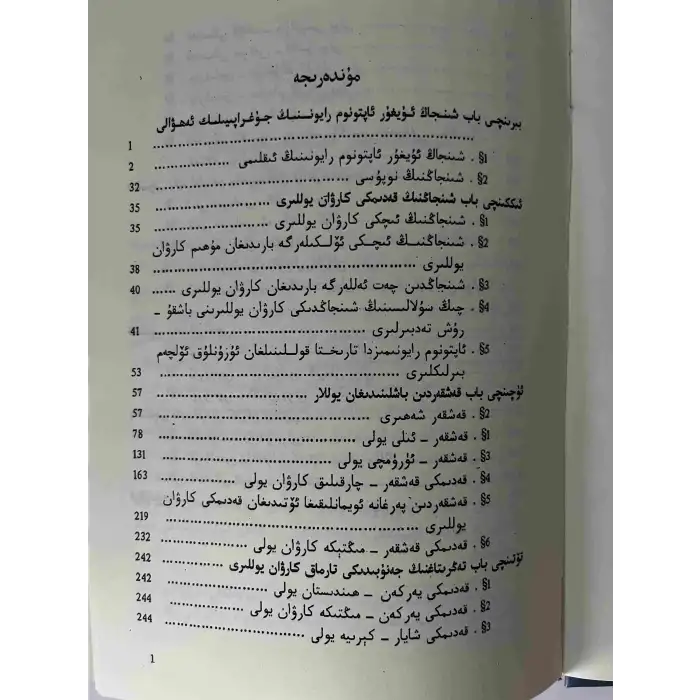 مۇندەرىجە
بىرىنچى باب شىنجاڭ ئۇيغۇر ئاپتونوم رايونىنىڭ جۇغراپىيىلىك ئەھۋالى
.................................................. 1
§1. شىنجاڭ ئۇيغۇر ئاپتونوم رايونىنىڭ ئىقلىمى .................. 2
§2. شىنجاڭنىڭ نوپۇسى .................................. 32
ئىككىنچى باب شىنجاڭنىڭ قەدىمكى كارۋان يوللىرى .................. 35
§1. شىنجاڭنىڭ ئىچكى كارۋان يوللىرى ....................... 35
§2. شىنجاڭنىڭ ئىچكى ئۆلكىلەرگە بارىدىغان مۇھىم كارۋان
يوللىرى .................................................. 38
§3. شىنجاڭدىن چەت ئەللەرگە بارىدىغان كارۋان يوللىرى ...... 40
§4. چىڭ سۇلالىسىنىڭ شىنجاڭدىكى كارۋان يوللىرىنى باشقۇ -
رۇش تەدبىرلىرى ........................................ 41
§5. ئاپتونوم رايونىمىزدا تارىختا قوللىنىلغان ئۇزۇنلۇق ئۆلچەم
بىرلىكلىرى .................................................. 53
ئۈچىنچى باب قەشقەردىن باشلىنىدىغان يوللار ....................... 57
§2. قەشقەر شەھىرى ........................................ 57
§1. قەشقەر - ئىلى يولى .................................... 78
§3. قەشقەر - ئۈرۈمچى يولى ................................ 131
§4. قەدىمكى قەشقەر - چارقىلىق كارۋان يولى .................. 163
§5. قەشقەردىن پەرغانە ئويمانلىقىغا ئۆتىدىغان قەدىمكى كارۋان
يوللىرى .................................................. 219
§6. قەدىمكى قەشقەر - مىڭتېكە كارۋان يولى .................. 232
تۆتىنچى باب تەڭرىتاغنىڭ جەنۇبىدىكى تارماق كارۋان يوللىرى ........ 242
§1. قەدىمكى يەركەن - ھىندىستان يولى ....................... 242
§2. قەدىمكى يەركەن - مىڭتىكە كارۋان يولى .................. 244
§3. قەدىمكى شايار - كېرىيە يولى ............................ 244
1